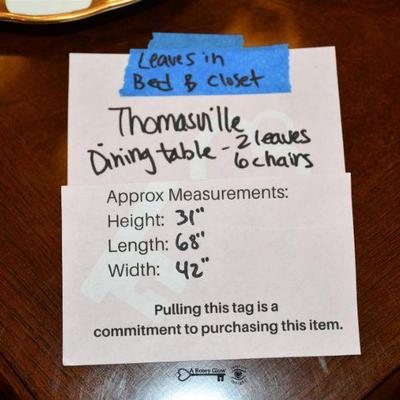 Leaves in
Bed B Closet
Thomasville
Dining table - 2 leaves
6 chairs
Approx Measurements:
Height: 31"
Length: 68"
Width: 42"
Pulling this tag is a
commitment to purchasing this item.
A Rosey Glow